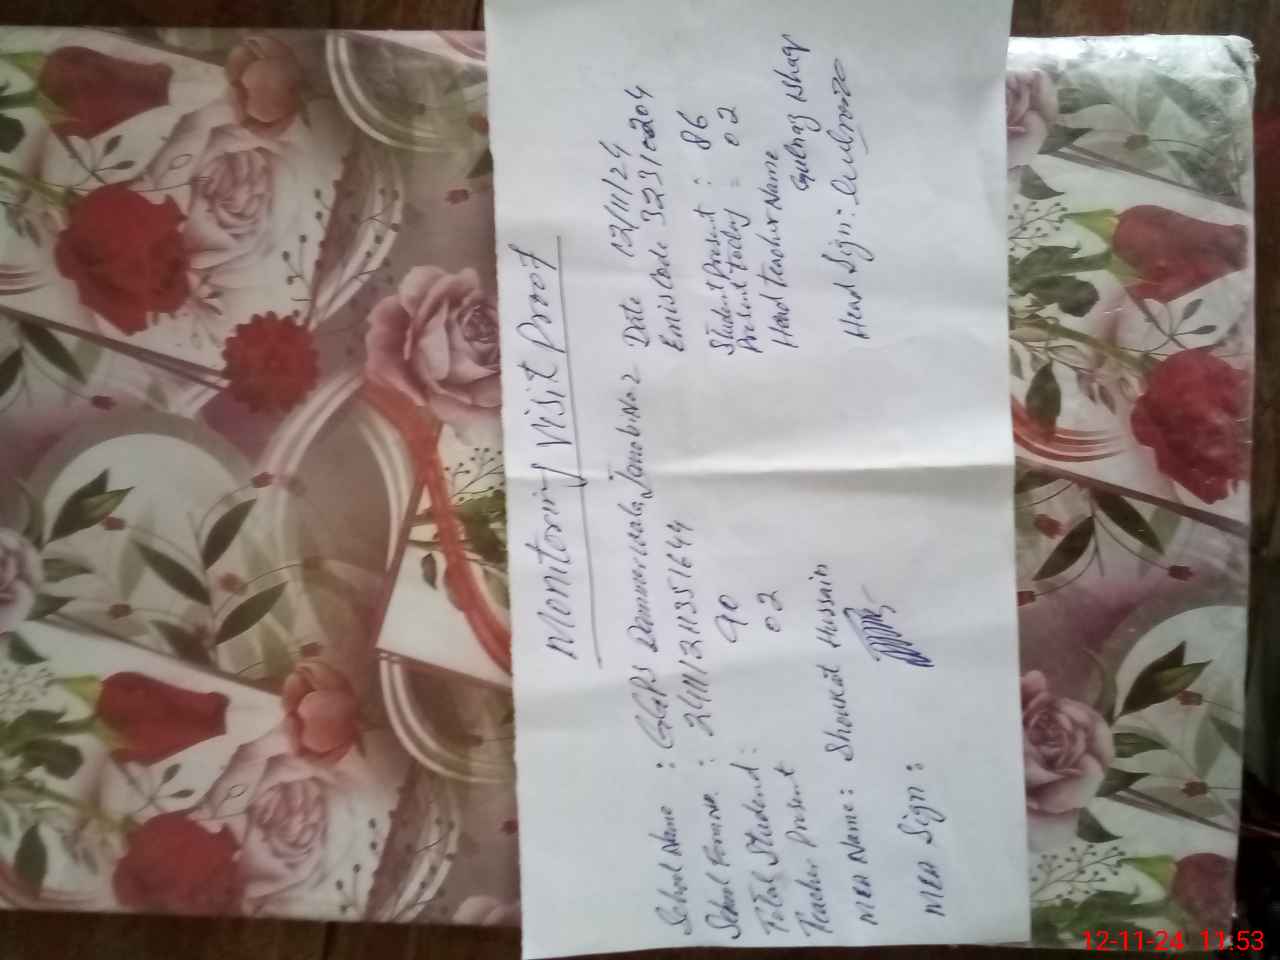 Monitoring Visit Proof
School Name : GGPS Dammerwala Janobi No 2 Date 12/11/24
School Form No. : 241112113351644 Emis Code 32310204
Total Student : 90 Student Present : 86
Teacher Present 02 Present Today = 02
MEA Name : Shoukat Hussain Head Teacher Name
Gulnaz Ishaq
MEA Sign : Head Sign :
12-11-24 11:53